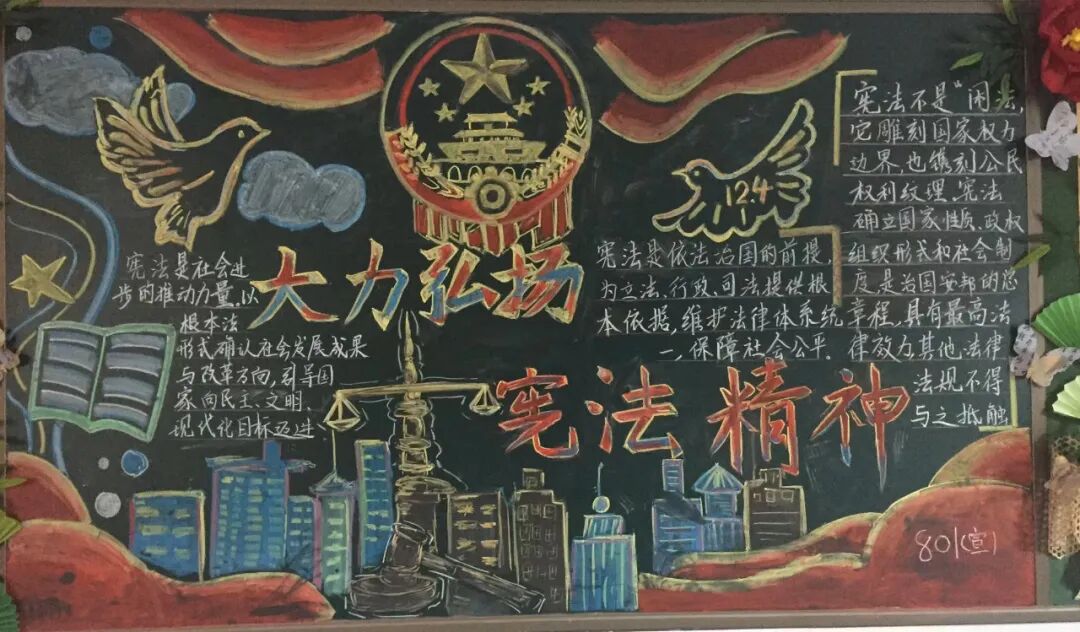 大力弘扬
宪法精神
宪法是社会进
步的推动力量,以
根本法
形式确认社会发展成果
与改革方向,引导国
家向民主、文明、
现代化目标迈进
12.4
宪法是依法治国的前提,
为立法、行政、司法提供根
本依据,维护法律体系统
一,保障社会公平.
宪法不是“闲法,
它雕刻国家权力
边界,也镌刻公民
权利纹理.宪法
确立国家性质、政权
组织形式和社会制
度,是治国安邦的总
章程,具有最高法
律效力,其他法律
法规不得
与之抵触
801(宣)